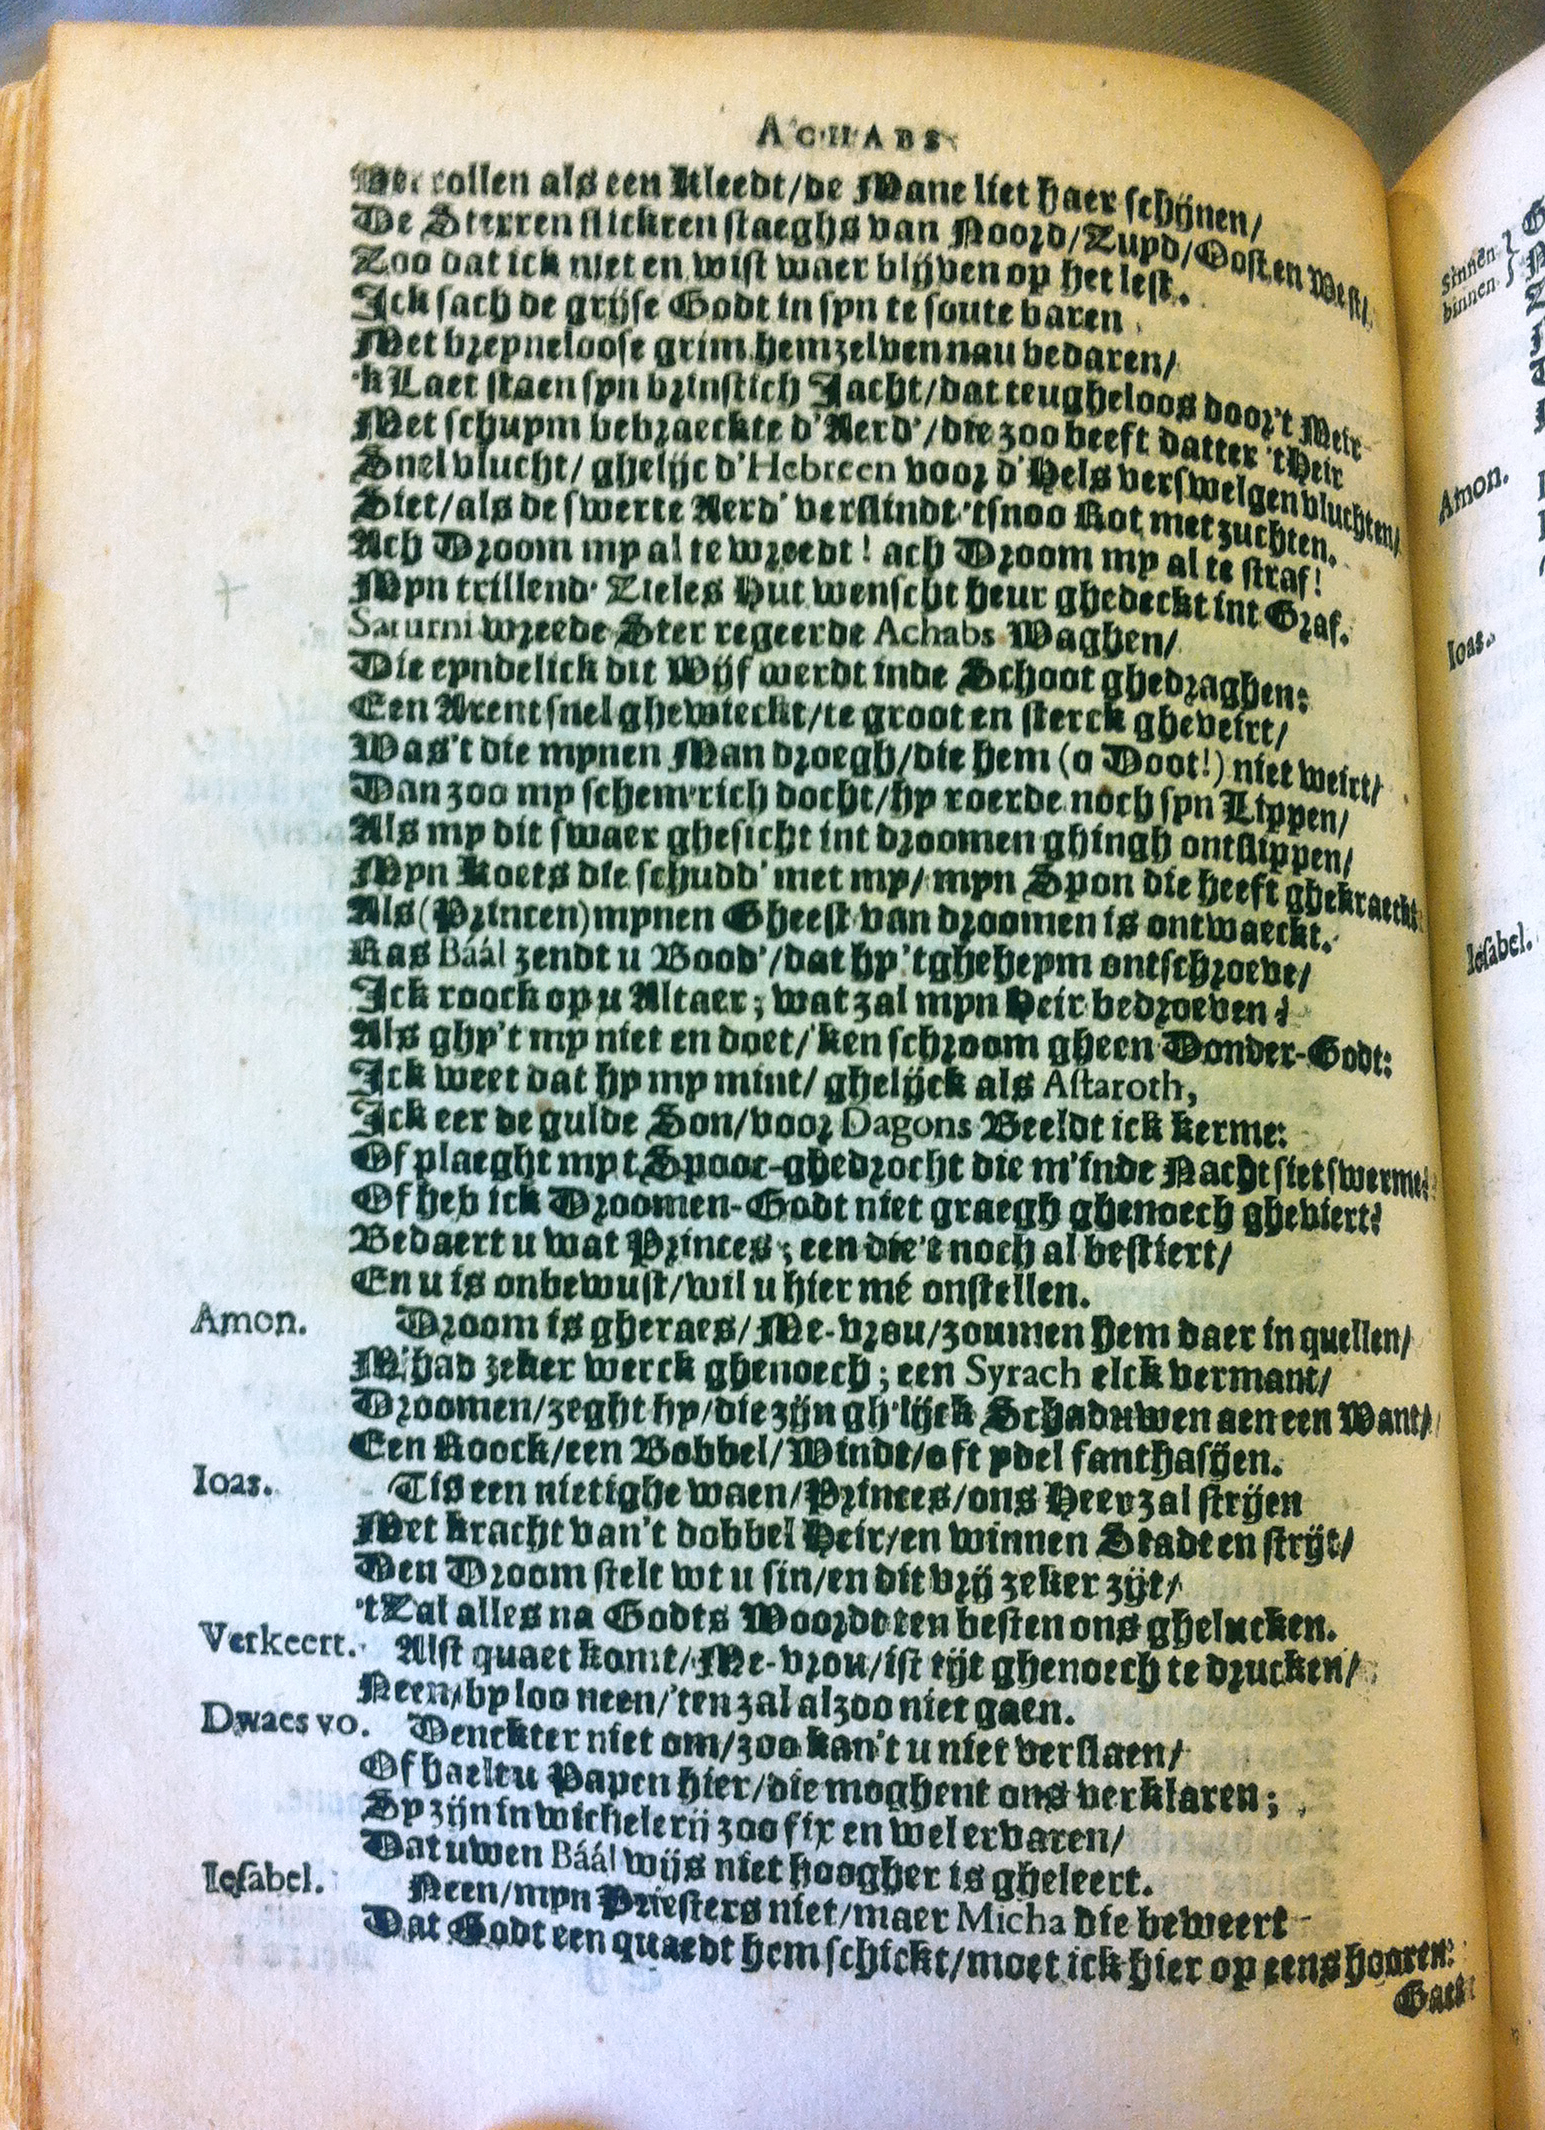 ACHABS
Ver rollen als een Kleedt/de Mane liet haer schijnen/
De Sterren flickren staeghs van Noord/Zuyd/Oost en West/
Zoo dat ick niet en wist waer blijven op het lest.
Ick sach de grijse Godt in syn te soute baren
Met breyneloose grim hemzelven nau bedaren/
'k Laet staen syn brinstich Jacht/dat teugheloos door't Meir
Met schuym bebraeckte d'Aerd'/die zoo beeft datter 't Heir
Snel vlucht/ ghelijc d'Hebreen voor d'Hels verswelgen vluchten/
Siet/als de swerte Aerd' verslindt 'tsnoo Rot met zuchten.
Ach Droom my al te wreedt! ach Droom my al te straf!
Myn trillend' Zieles Hut wenscht heur ghedeckt int Graf.
Saturni wreede Ster regeerde Achabs Waghen/
Die eyndelick dit Wijf werdt inde Schoot ghedraghen:
Een Arent snel ghewieckt/te groot en sterck gheveirt/
Was't die mynen Man droegh/die hem (o Doot!) niet weirt/
Dan zoo my schem'rich docht/hy roerde noch syn Lippen/
Als my dit swaer ghesicht int droomen ghingh ontslippen/
Myn Koets die schudd' met my/ myn Spon die heeft ghekraeckt
Als (Princen) mynen Gheest van droomen is ontwaeckt.
Ras Báál zendt u Bood'/dat hy 'tgheheym ontschroeve/
Ick roock op u Altaer; wat zal myn Heir bedroeven?
Als ghy't my niet en doet/'ken schroom gheen Donder-Godt:
Ick weet dat hy my mint/ ghelijck als Astaroth,
Ick eer de gulde Son/voor Dagons Beeldt ick kerme:
Of plaeght my t Spooc-ghedrocht die m'inde Nacht siet swerme?
Of heb ick Droomen-Godt niet graegh ghenoech gheviert?
Bedaert u wat Princes; een die't noch al bestiert/
En u is onbewust/wil u hier mé onstellen.
Amon. Droom is gheraes/Me-vrou/zoumen hem daer in quellen/
M'had zeker werck ghenoech; een Syrach elck vermant/
Droomen/zeght hy/die zijn gh'lijck Schaduwen aen een Want/
Een Roock/een Bobbel/Windt/oft ydel fanthasijen.
Ioas. Tis een nietighe waen/Princes/ons Heer zal strijen
Met kracht van't dobbel Heir/en winnen Stadt en strijt/
Den Droom stelt wt u sin/en dit vrij zeker zijt/
'tZal alles na Godts Woordt ten besten ons ghelucken.
Verkeert. Alst quaet komt/Me-vrou/ist tijt ghenoech te drucken/
Neen/by loo neen/'ten zal alzoo niet gaen.
Dwaes vo. Denckter niet om/zoo kan't u niet verslaen/
Of haelt u Papen hier/die moghent ons verklaren;
Sy zijn in wichelerij zoo fix en wel ervaren/
Dat uwen Báál wijs niet hoogher is gheleert.
Iesabel. Neen/myn Priesters niet/maer Micha die beweert
Dat Godt een quaedt hem schickt/moet ick hier op eens hooren:
Gaet
Sinnen
binnen
Amon.
Ioas.
Iesabel.